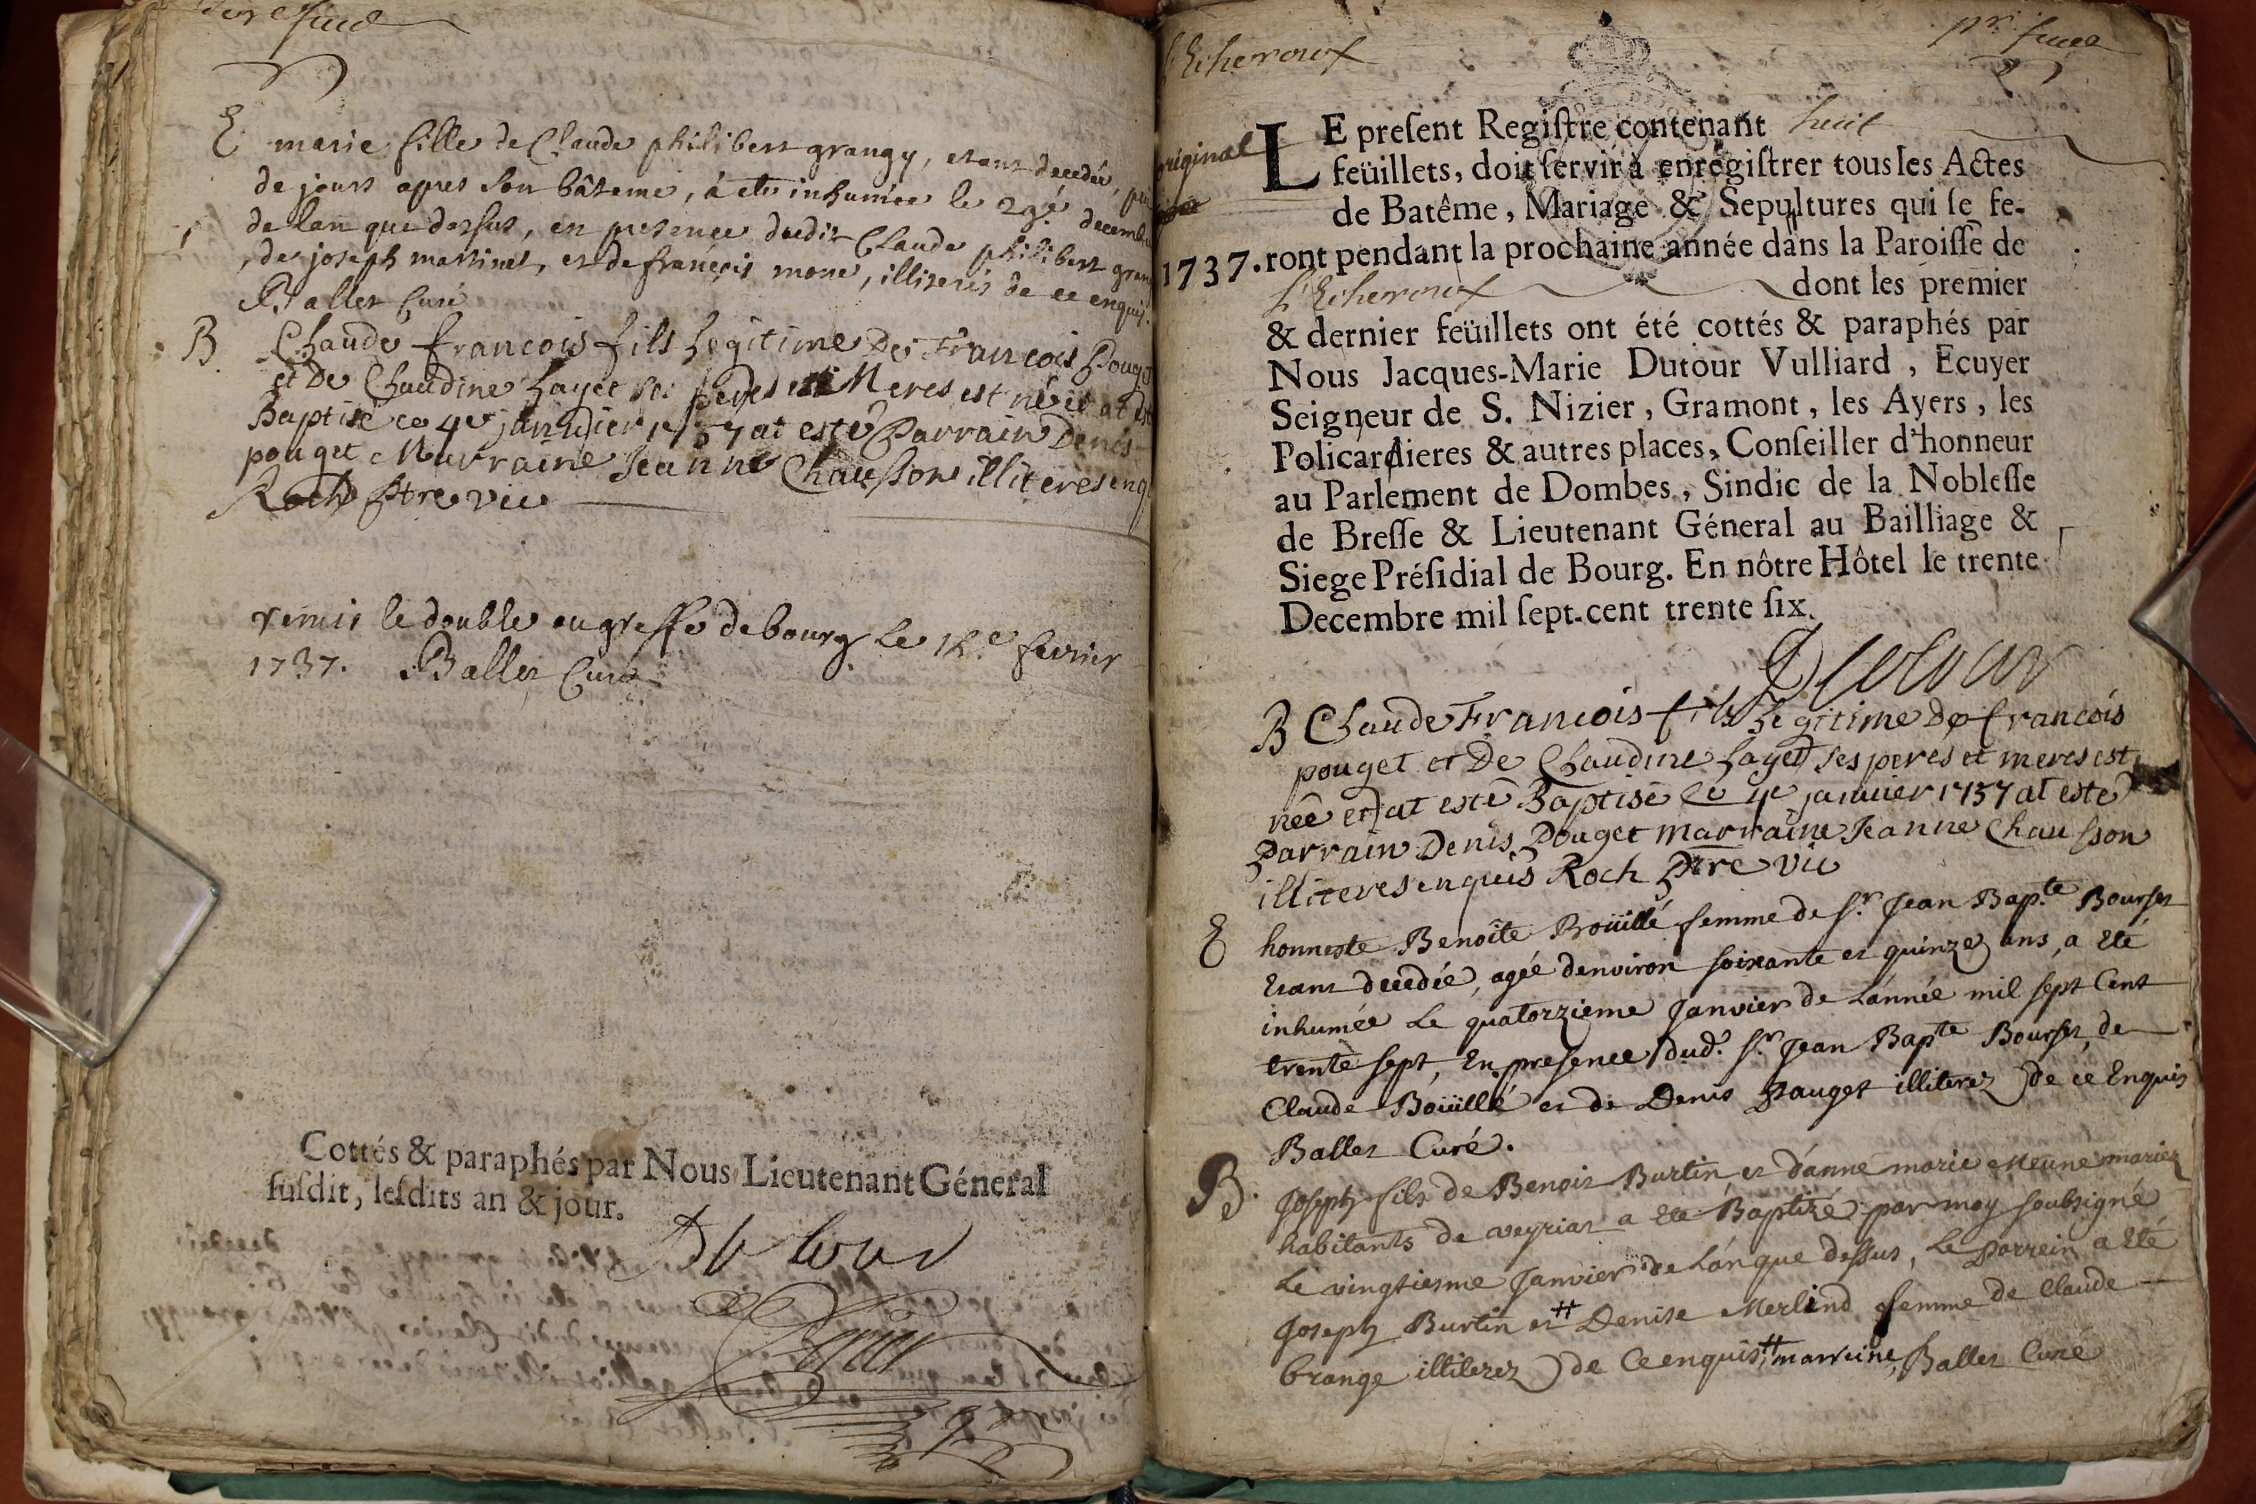 E marie fille de Claude philibert grangy, etant decedée,
de jours apres son bâteme, à ete inhumée le 29.e decembre
de lan que dessus, en presence dudit Claude philibert
, de joseph martinet, et de françois mone, illiterés de ce enquis.
Ballet Curé
B Claude francois fils Legitime De Francois Pouget
et De Claudine Layet Ses peres et Meres est née et at esté
Baptisé ce 4e janvier 1737 at esté Parrain Denis
pouget Marraine Jeanne Chausson illiteres enq
Roch ptre vic
remis le double au greffe de bourg Le 12.e fevrier
1737. Ballet Curé
Cottés & paraphés par Nous Lieutenant Géneral
ſuſdit, leſdits an & jour.
Dutour
L'Echeroux
pr. feuea
original
LE preſent Regiſtre contenant huit
feüillets, doit ſervir à enregiſtrer tous les Actes
de Batême, Mariage & Sepultures qui ſe fe-
1737. ront pendant la prochaine année dans la Paroiſſe de
L'Echeroux dont les premier
& dernier feüillets ont été cottés & paraphés par
Nous Jacques-Marie Dutour Vulliard, Ecuyer
Seigneur de S. Nizier, Gramont, les Ayers, les
Policardieres & autres places, Conſeiller d'honneur
au Parlement de Dombes, Sindic de la Nobleſſe
de Breſſe & Lieutenant Géneral au Bailliage &
Siege Préſidial de Bourg. En nôtre Hôtel le trente
Decembre mil ſept-cent trente ſix.
Dutour
B Claude Francois fils Legitime De francois
pouget et De Claudine Layet ses peres et meres est
née et at esté Baptisé Le 4e janvier 1737 at esté
Parrain Denis Pouget marraine Jeanne Chausson
illiteres enquis Roch Ptre Vic
E honneste Benoîte Broüillé femme de Sr. Jean Bap.te Bourset
Etant decedée, agée denviron soixante et quinze ans, a Eté
inhumée Le quatorzieme Janvier de Lannée mil sept Cent
trente sept, En presence dud. Sr. Jean Bapte Bourset, de
Claude Boüillé et de Denis Pauget illiterez de ce Enquis
Ballet Curé.
B. Joseph fils de Benoit Burtin, et d'anne marie Meune mariez
habitants de veyriat a Eté Baptizé par moy soubsigné
Le vingtiesme Janvier de L'an que dessus, Le parrein a Eté
Joseph Burtin et # Denise Merlind femme de Claude
brange illiterez de Ce enquis, # marreine, Ballet Curé